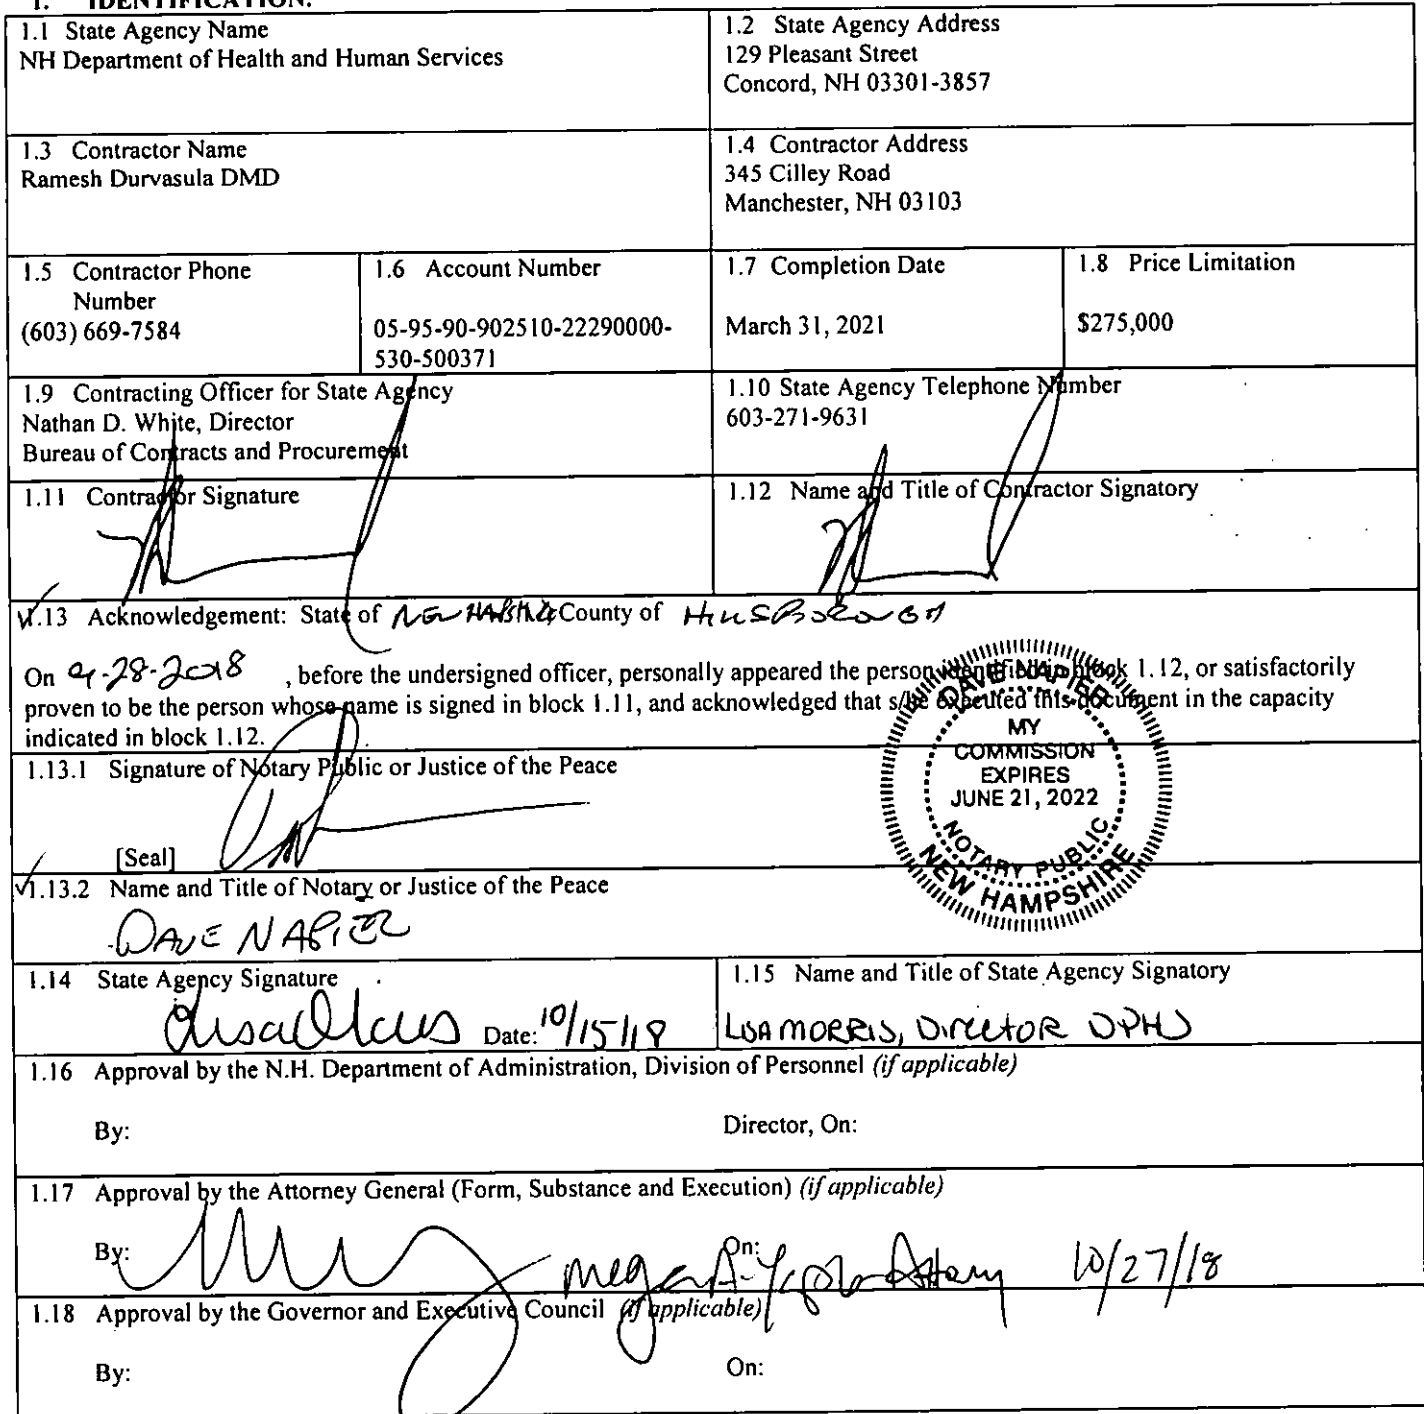 1. IDENTIFICATION.
1.1 State Agency Name
NH Department of Health and Human Services
1.2 State Agency Address
129 Pleasant Street
Concord, NH 03301-3857
1.3 Contractor Name
Ramesh Durvasula DMD
1.4 Contractor Address
345 Cilley Road
Manchester, NH 03103
1.5 Contractor Phone
Number
(603) 669-7584
1.6 Account Number
05-95-90-902510-22290000-
530-500371
1.7 Completion Date
March 31, 2021
1.8 Price Limitation
$275,000
1.9 Contracting Officer for State Agency
Nathan D. White, Director
Bureau of Contracts and Procurement
1.10 State Agency Telephone Number
603-271-9631
1.11 Contractor Signature
1.12 Name and Title of Contractor Signatory
1.13 Acknowledgement: State of County of
On 9-28-2018 , before the undersigned officer, personally appeared the person identified in block 1.12, or satisfactorily
proven to be the person whose name is signed in block 1.11, and acknowledged that s/he executed this document in the capacity
indicated in block 1.12.
1.13.1 Signature of Notary Public or Justice of the Peace
[Seal]
DAVE NAPIER
MY
COMMISSION
EXPIRES
JUNE 21, 2022
NOTARY PUBLIC
NEW HAMPSHIRE
1.13.2 Name and Title of Notary or Justice of the Peace
DAVE NAPIER
1.14 State Agency Signature
Date: 10/15/18
1.15 Name and Title of State Agency Signatory
LISA MORRIS, DIRECTOR DPHS
1.16 Approval by the N.H. Department of Administration, Division of Personnel (if applicable)
By:
Director, On:
1.17 Approval by the Attorney General (Form, Substance and Execution) (if applicable)
By:
On:
10/27/18
1.18 Approval by the Governor and Executive Council (if applicable)
By:
On: